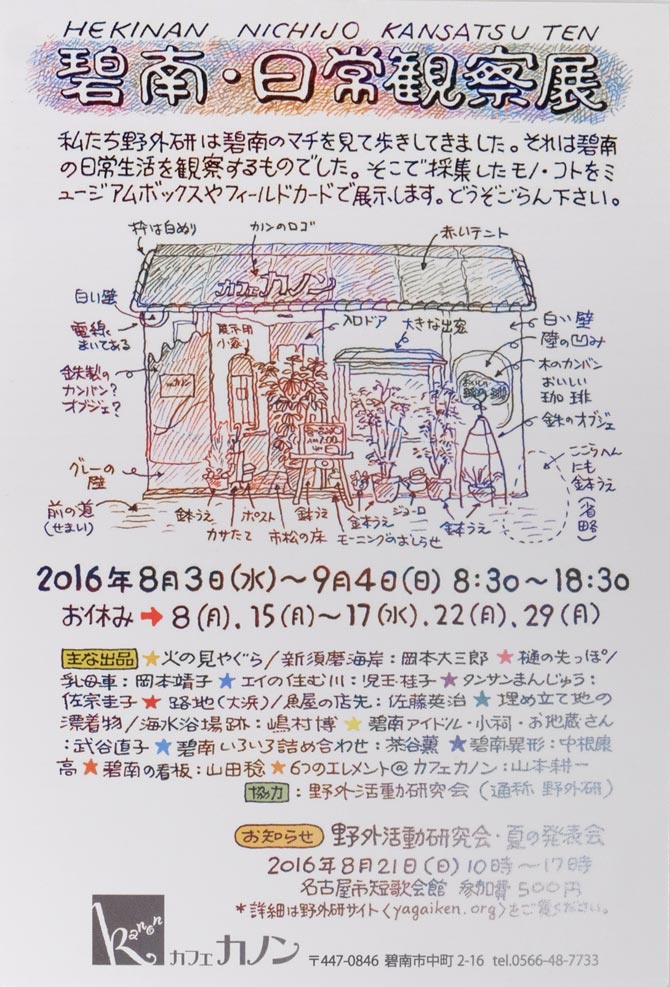 HEKINAN NICHIJO KANSATSU TEN
碧南・日常観察展
私たち野外研は碧南のマチを見て歩きしてきました。それは碧南
の日常生活を観察するものでした。そこで採集したモノ・コトをミ
ュージアムボックスやフィールドカードで展示します。どうぞごらん下さい。
枠は白ぬり
カノンのロゴ
赤いテント
カフェカノン
白い壁
電線
まいてある
展示用
小窓
入口ドア
大きな出窓
白い壁
壁の凹み
鉄製の
カンバン?
オブジェ?
木のカンバン
おいしい
珈琲
鉄のオブジェ
グレーの
壁
ここらへん
にも
鉢うえ
(省略)
前の道
(せまい)
鉢うえ
カサたて
ポスト
市松の床
鉢うえ
モーニングのおしらせ
鉢うえ
ジョーロ
鉢うえ
2016年8月3日(水)～9月4日(日) 8:30～18:30
お休み→8(月).15(月)～17(水).22(月).29(月)
主な出品 ★火の見やぐら/新須磨海岸:岡本大三郎★樋の先っぽ/
乳母車:岡本靖子★エイの住む川:児玉桂子★タンサンまんじゅう:
佐宗圭子★路地(大浜)/魚屋の店先:佐藤英治★埋め立て地の
漂着物/海水浴場跡:嶋村博★碧南アイドル・小祠・お地蔵さん
:武谷直子★碧南いろいろ詰め合わせ:茶谷薫★碧南異形:中根康
高★碧南の看板:山田稔★6つのエレメント@カフェカノン:山本耕一
協力:野外活動研究会(通称 野外研)
お知らせ 野外活動研究会・夏の発表会
2016年8月21日(日)10時～17時
名古屋市短歌会館 参加費500円
*詳細は野外研サイト<yagaiken.org>をご覧ください。
Kanon
カフェ カノン 〒447-0846 碧南市中町 2-16 tel.0566-48-7733